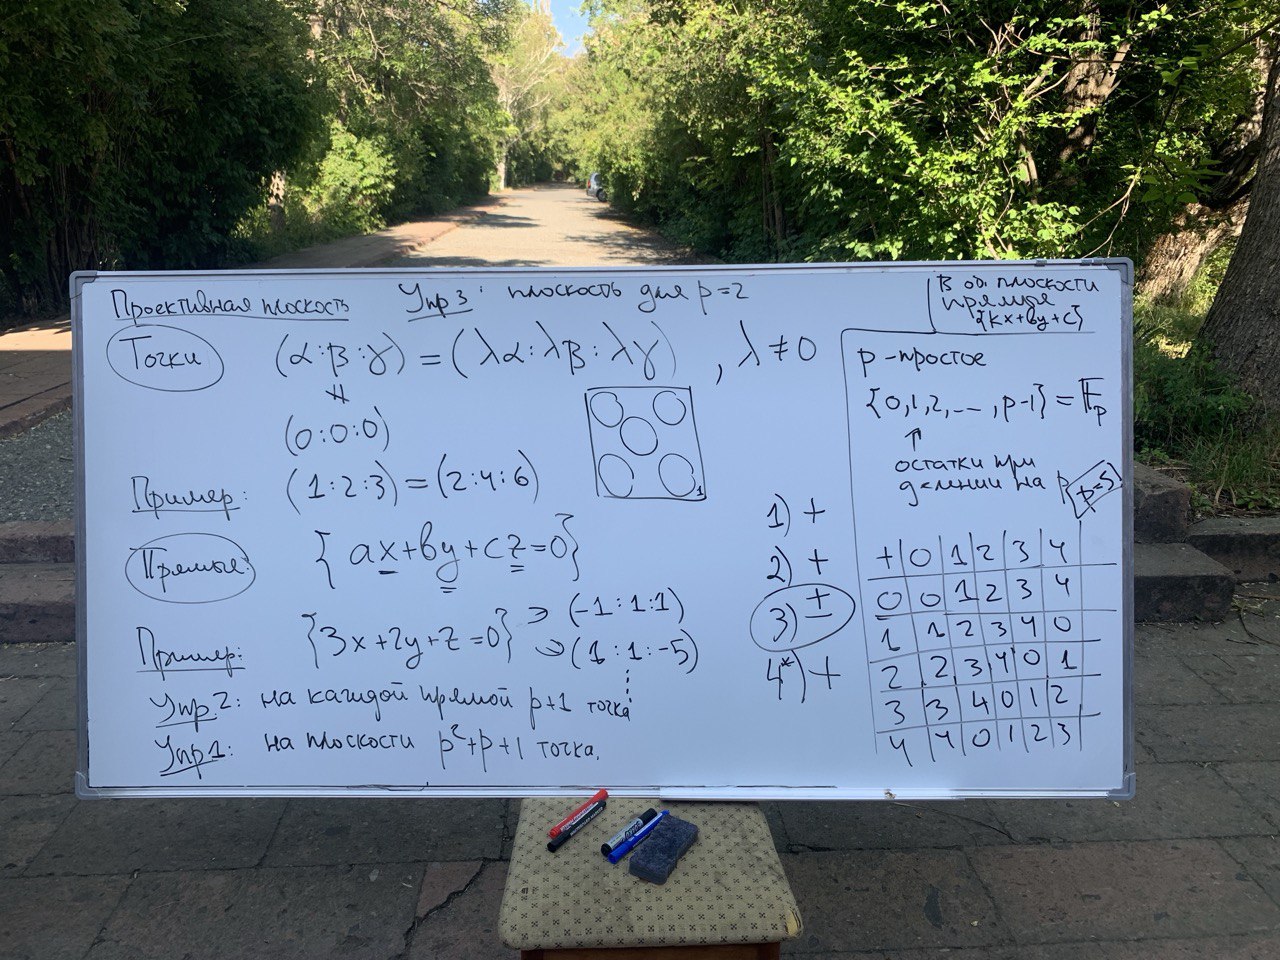 Проективная плоскость
Упр3: плоскость для p=2
Точки
(α:β:γ) = (λα:λβ:λγ), λ≠0
≠
(0:0:0)
Пример: (1:2:3)=(2:4:6)
1
Прямые:
{ax+by+cz=0}
Пример: {3x+2y+z=0}
→ (-1:1:1)
→ (1:1:-5)
Упр2: на каждой прямой p+1 точка
Упр1: на плоскости p²+p+1 точка.
1) +
2) +
3) ±
4*) +
В об плоскости
прямые
{kx+by+c}
p-простое
{0,1,2,...,p-1} = 𝔽ₚ
↑
остатки при
делнии на p
p=5
+ 0 1 2 3 4
0 0 1 2 3 4
1 1 2 3 4 0
2 2 3 4 0 1
3 3 4 0 1 2
4 4 0 1 2 3